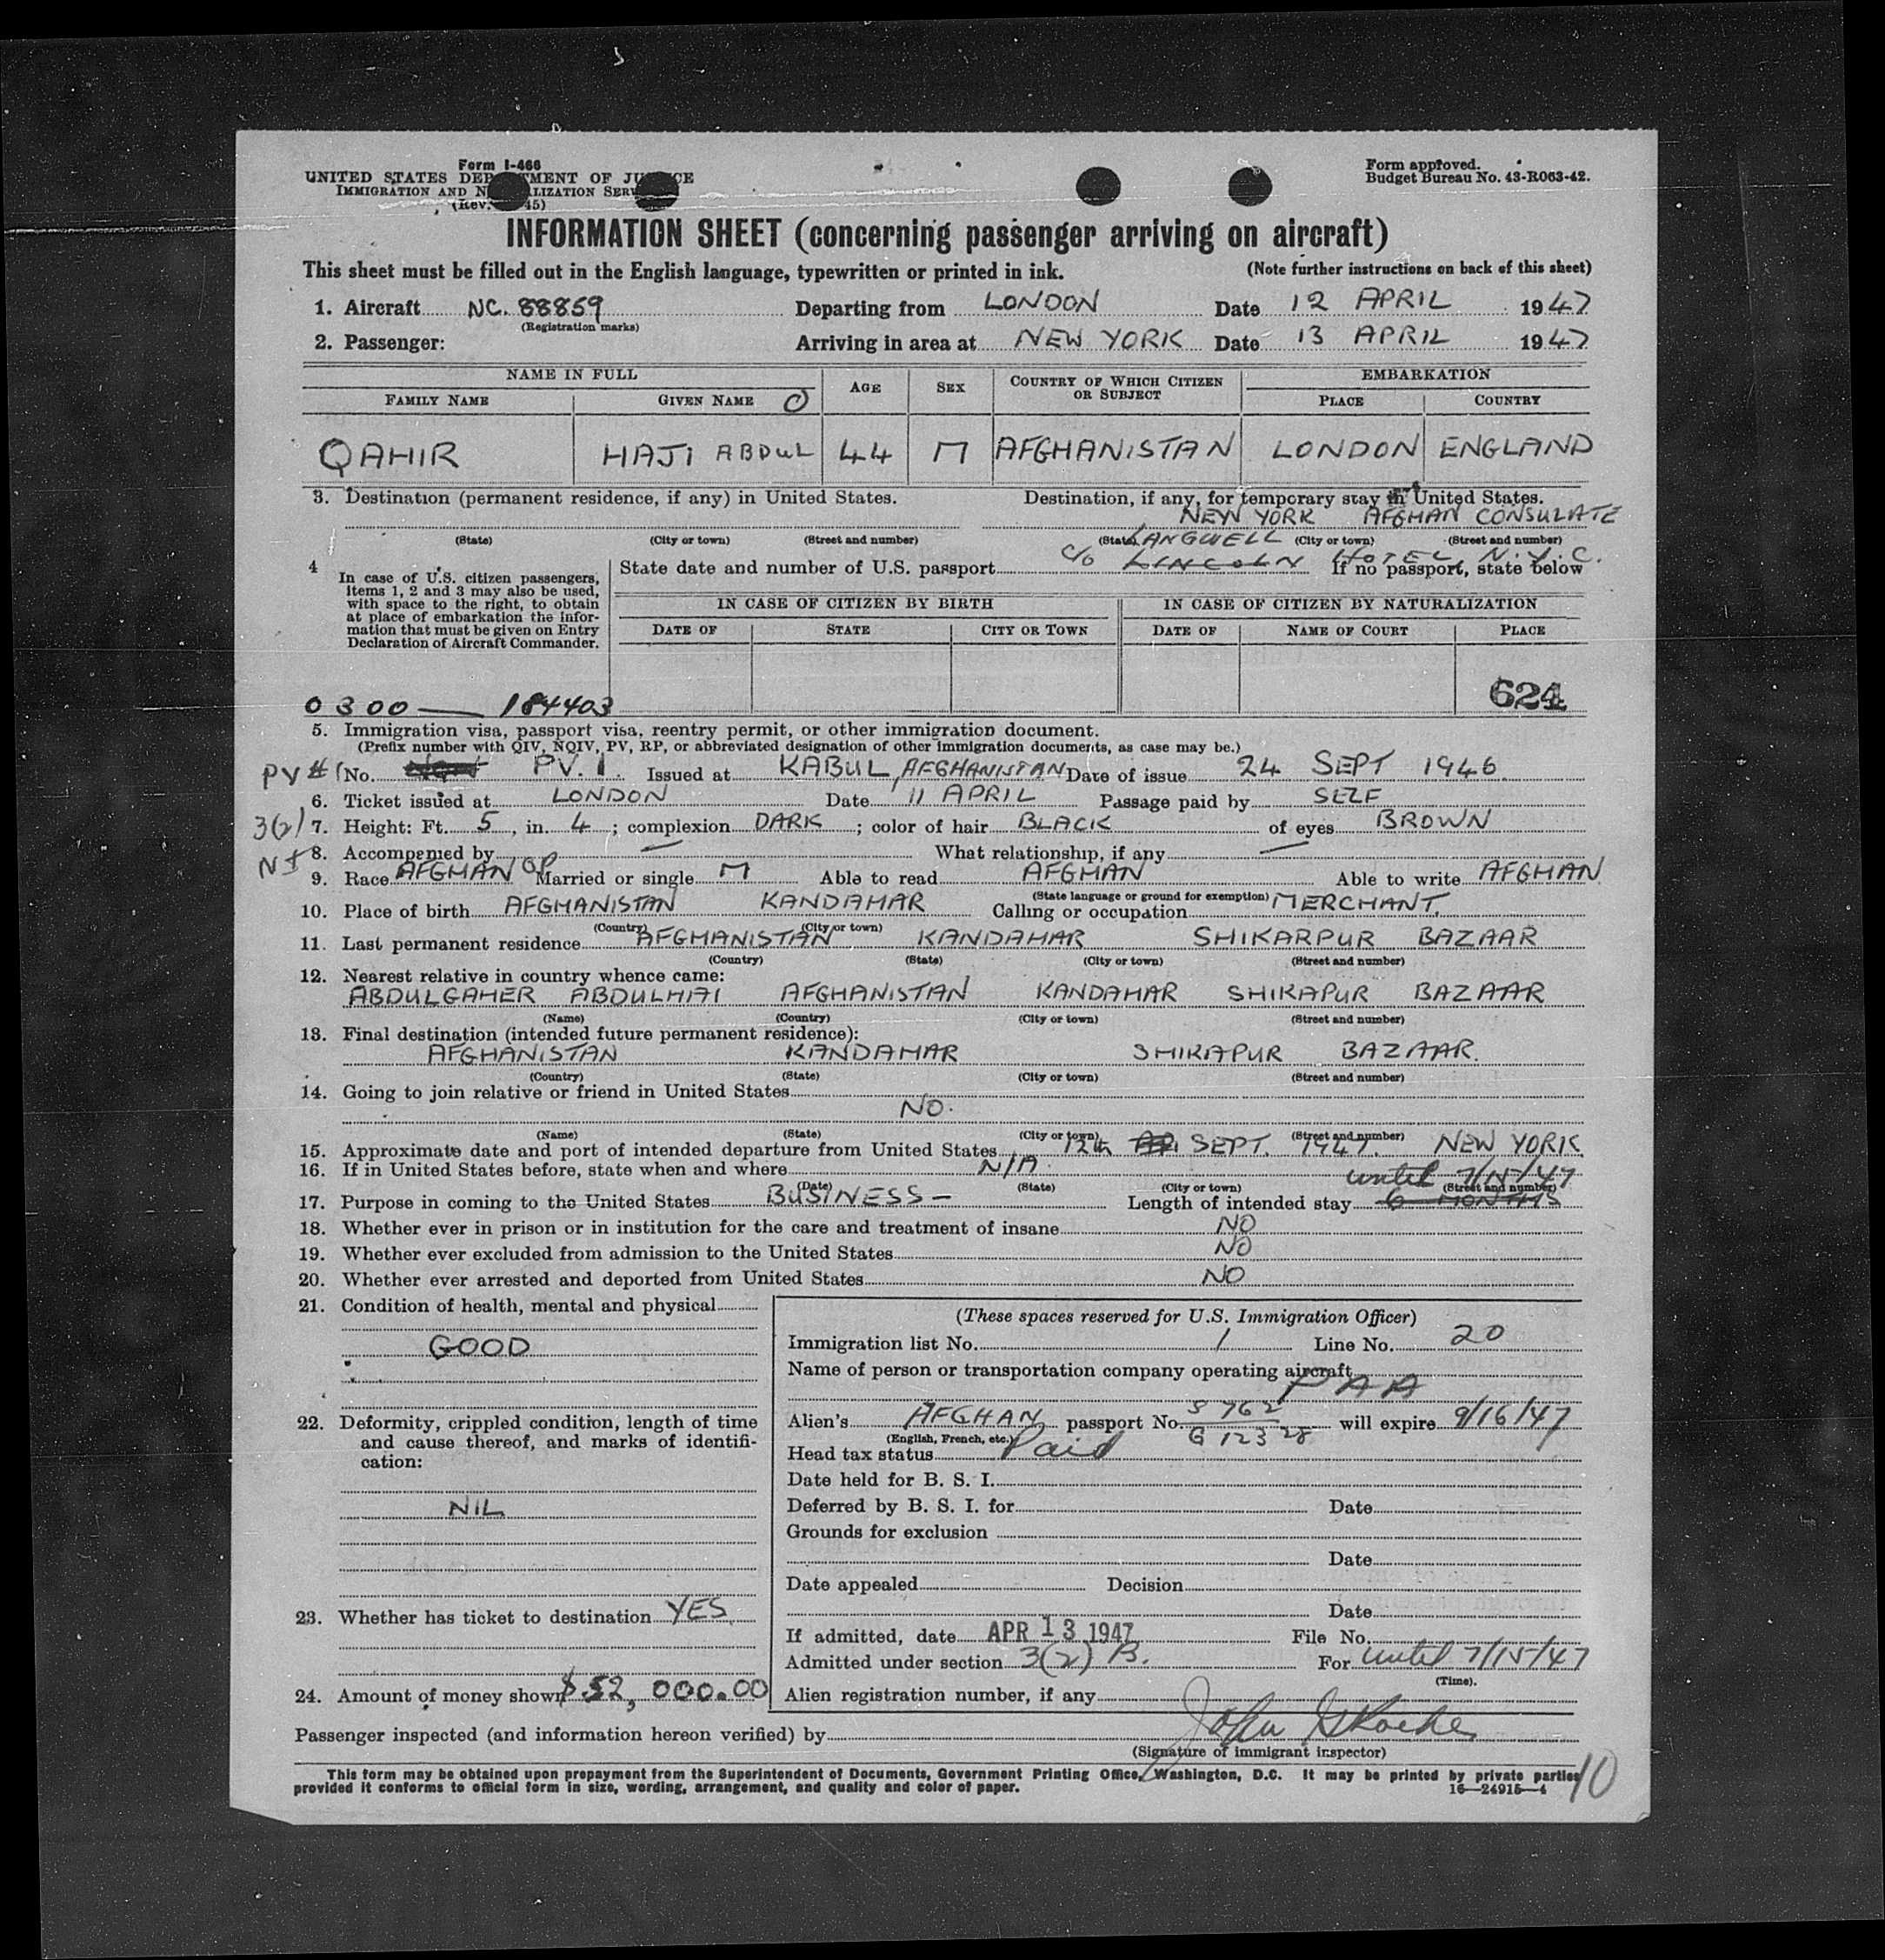 Form I-466
UNITED STATES DEP TMENT OF JU CE
IMMIGRATION AND N LIZATION SER
(Rev. 45)
Form approved.
Budget Bureau No. 43-R063-42.
INFORMATION SHEET (concerning passenger arriving on aircraft)
This sheet must be filled out in the English language, typewritten or printed in ink. (Note further instructions on back of this sheet)
1. Aircraft NC. 88859 Departing from LONDON Date 12 APRIL 1947
(Registration marks)
2. Passenger: Arriving in area at NEW YORK Date 13 APRIL 1947
NAME IN FULL AGE SEX COUNTRY OF WHICH CITIZEN OR SUBJECT EMBARKATION
FAMILY NAME GIVEN NAME PLACE COUNTRY
QAHIR HAJI ABDUL 44 M AFGHANISTAN LONDON ENGLAND
3. Destination (permanent residence, if any) in United States. Destination, if any, for temporary stay in United States.
NEW YORK AFGHAN CONSULATE
(State) (City or town) (Street and number) (State) (City or town) (Street and number)
LANGWELL
c/o LINCOLN HOTEL, N.Y.C.
4 In case of U.S. citizen passengers,
items 1, 2 and 3 may also be used,
with space to the right, to obtain
at place of embarkation the infor-
mation that must be given on Entry
Declaration of Aircraft Commander.
State date and number of U.S. passport If no passport, state below
IN CASE OF CITIZEN BY BIRTH IN CASE OF CITIZEN BY NATURALIZATION
DATE OF STATE CITY OR TOWN DATE OF NAME OF COURT PLACE
624
0300 — 184403
5. Immigration visa, passport visa, reentry permit, or other immigration document.
(Prefix number with QIV, NQIV, PV, RP, or abbreviated designation of other immigration documents, as case may be.)
PV # 1 No. PV. 1 Issued at KABUL, AFGHANISTAN Date of issue 24 SEPT 1946
6. Ticket issued at LONDON Date 11 APRIL Passage paid by SELF
3(2) 7. Height: Ft. 5, in. 4; complexion DARK; color of hair BLACK of eyes BROWN
8. Accompanied by — What relationship, if any —
9. Race AFGHAN Married or single M Able to read AFGHAN Able to write AFGHAN
(State language or ground for exemption)
10. Place of birth AFGHANISTAN KANDAHAR Calling or occupation MERCHANT.
(Country) (City or town)
11. Last permanent residence AFGHANISTAN KANDAHAR SHIKARPUR BAZAAR
(Country) (State) (City or town) (Street and number)
12. Nearest relative in country whence came:
ABDULGAHER ABDULHAI AFGHANISTAN KANDAHAR SHIKAPUR BAZAAR
(Name) (Country) (City or town) (Street and number)
13. Final destination (intended future permanent residence):
AFGHANISTAN KANDAHAR SHIKAPUR BAZAAR.
(Country) (State) (City or town) (Street and number)
14. Going to join relative or friend in United States
NO.
(Name) (State) (City or town) (Street and number)
15. Approximate date and port of intended departure from United States 12th SEPT. 1947. NEW YORK
16. If in United States before, state when and where N/A
(Date) (State) (City or town) (Street and number)
until 7/15/47
17. Purpose in coming to the United States BUSINESS — Length of intended stay 6 MONTHS
18. Whether ever in prison or in institution for the care and treatment of insane NO
19. Whether ever excluded from admission to the United States NO
20. Whether ever arrested and deported from United States NO
21. Condition of health, mental and physical
GOOD
22. Deformity, crippled condition, length of time
and cause thereof, and marks of identifi-
cation:
NIL
23. Whether has ticket to destination YES
24. Amount of money shown $52,000.00
(These spaces reserved for U.S. Immigration Officer)
Immigration list No. 1 Line No. 20
Name of person or transportation company operating aircraft
PAA
Alien's AFGHAN passport No. 5762 G 12328 will expire 9/16/47
(English, French, etc.)
Head tax status Paid
Date held for B. S. I.
Deferred by B. S. I. for Date
Grounds for exclusion
Date
Date appealed Decision
Date
If admitted, date APR 13 1947 File No.
Admitted under section 3(2) B. For until 7/15/47
(Time).
Alien registration number, if any
Passenger inspected (and information hereon verified) by John
(Signature of immigrant inspector)
This form may be obtained upon prepayment from the Superintendent of Documents, Government Printing Office, Washington, D.C. It may be printed by private parties
provided it conforms to official form in size, wording, arrangement, and quality and color of paper. 16—24915—4
10